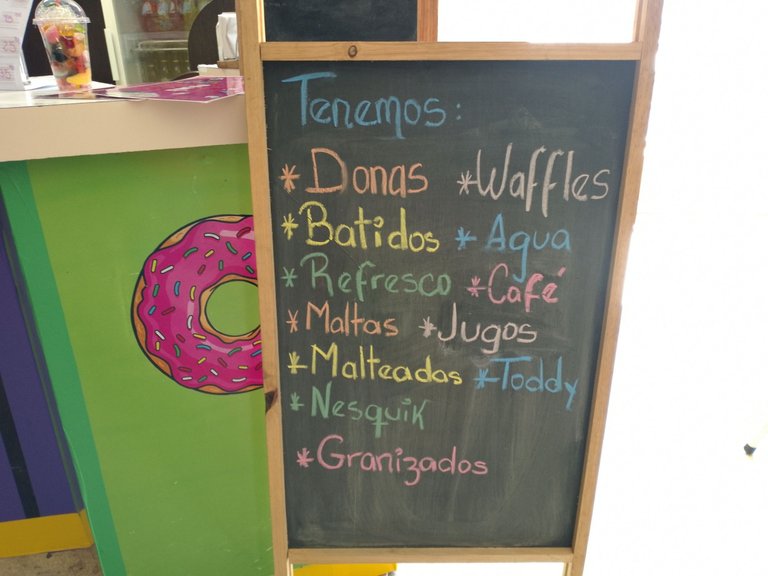 Tenemos:
*Donas *Waffles
*Batidos *Agua
*Refresco *Café
*Maltas *Jugos
*Malteadas *Toddy
*Nesquik
*Granizados